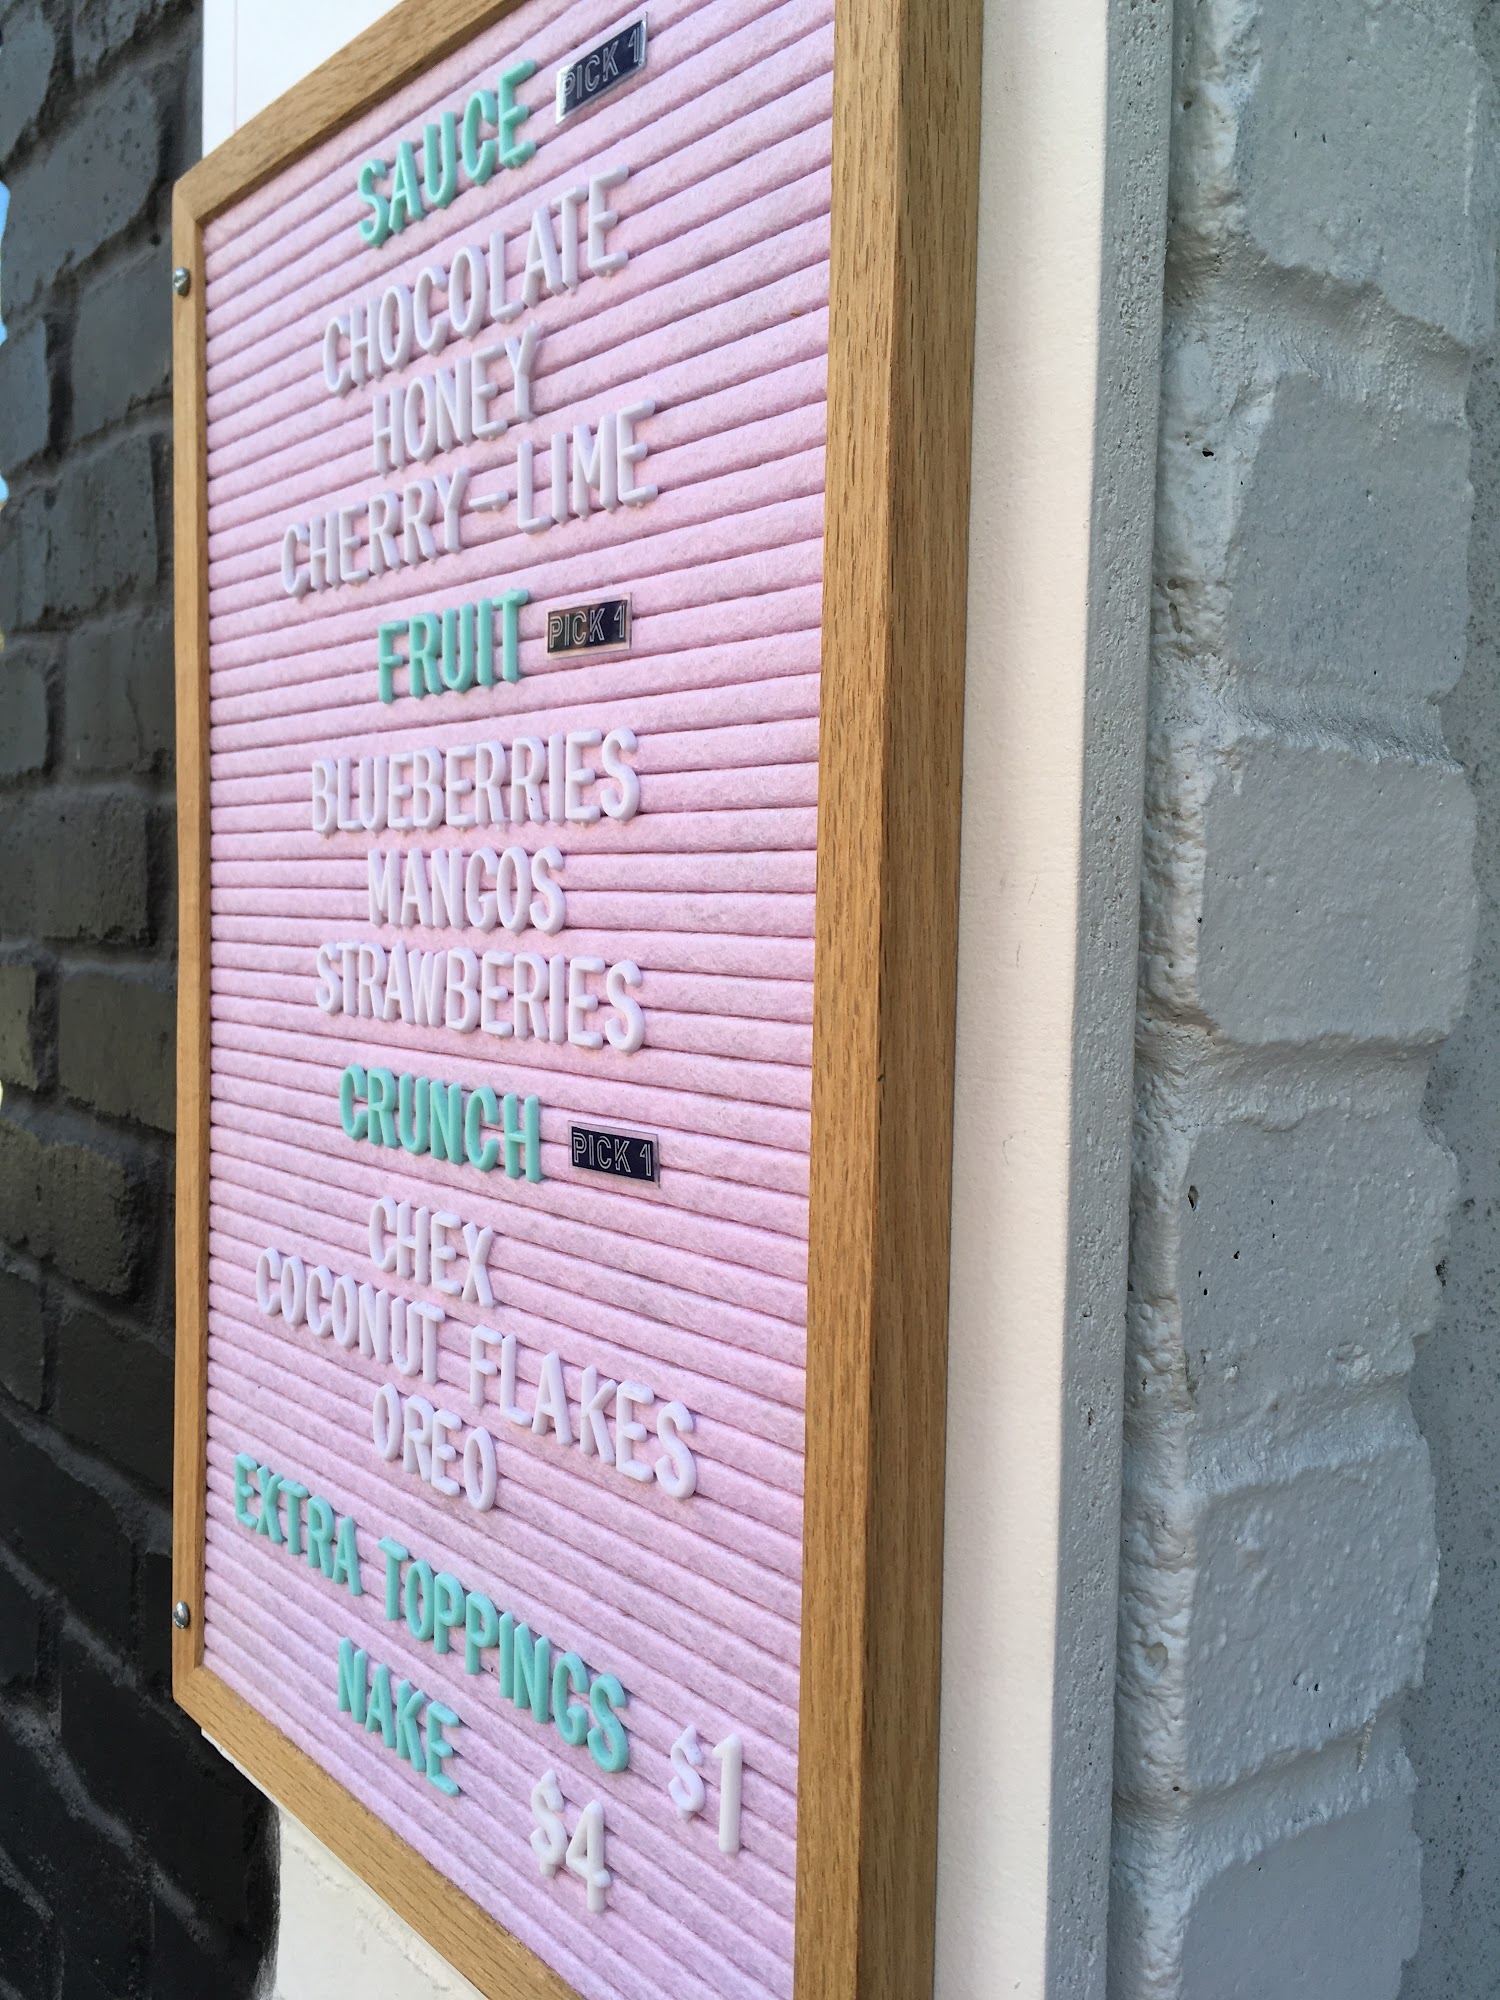 SAUCE PICK 1
CHOCOLATE
HONEY
CHERRY-LIME
FRUIT PICK 1
BLUEBERRIES
MANGOS
STRAWBERIES
CRUNCH PICK 1
CHEX
COCONUT FLAKES
OREO
EXTRA TOPPINGS $1
NAKE $4